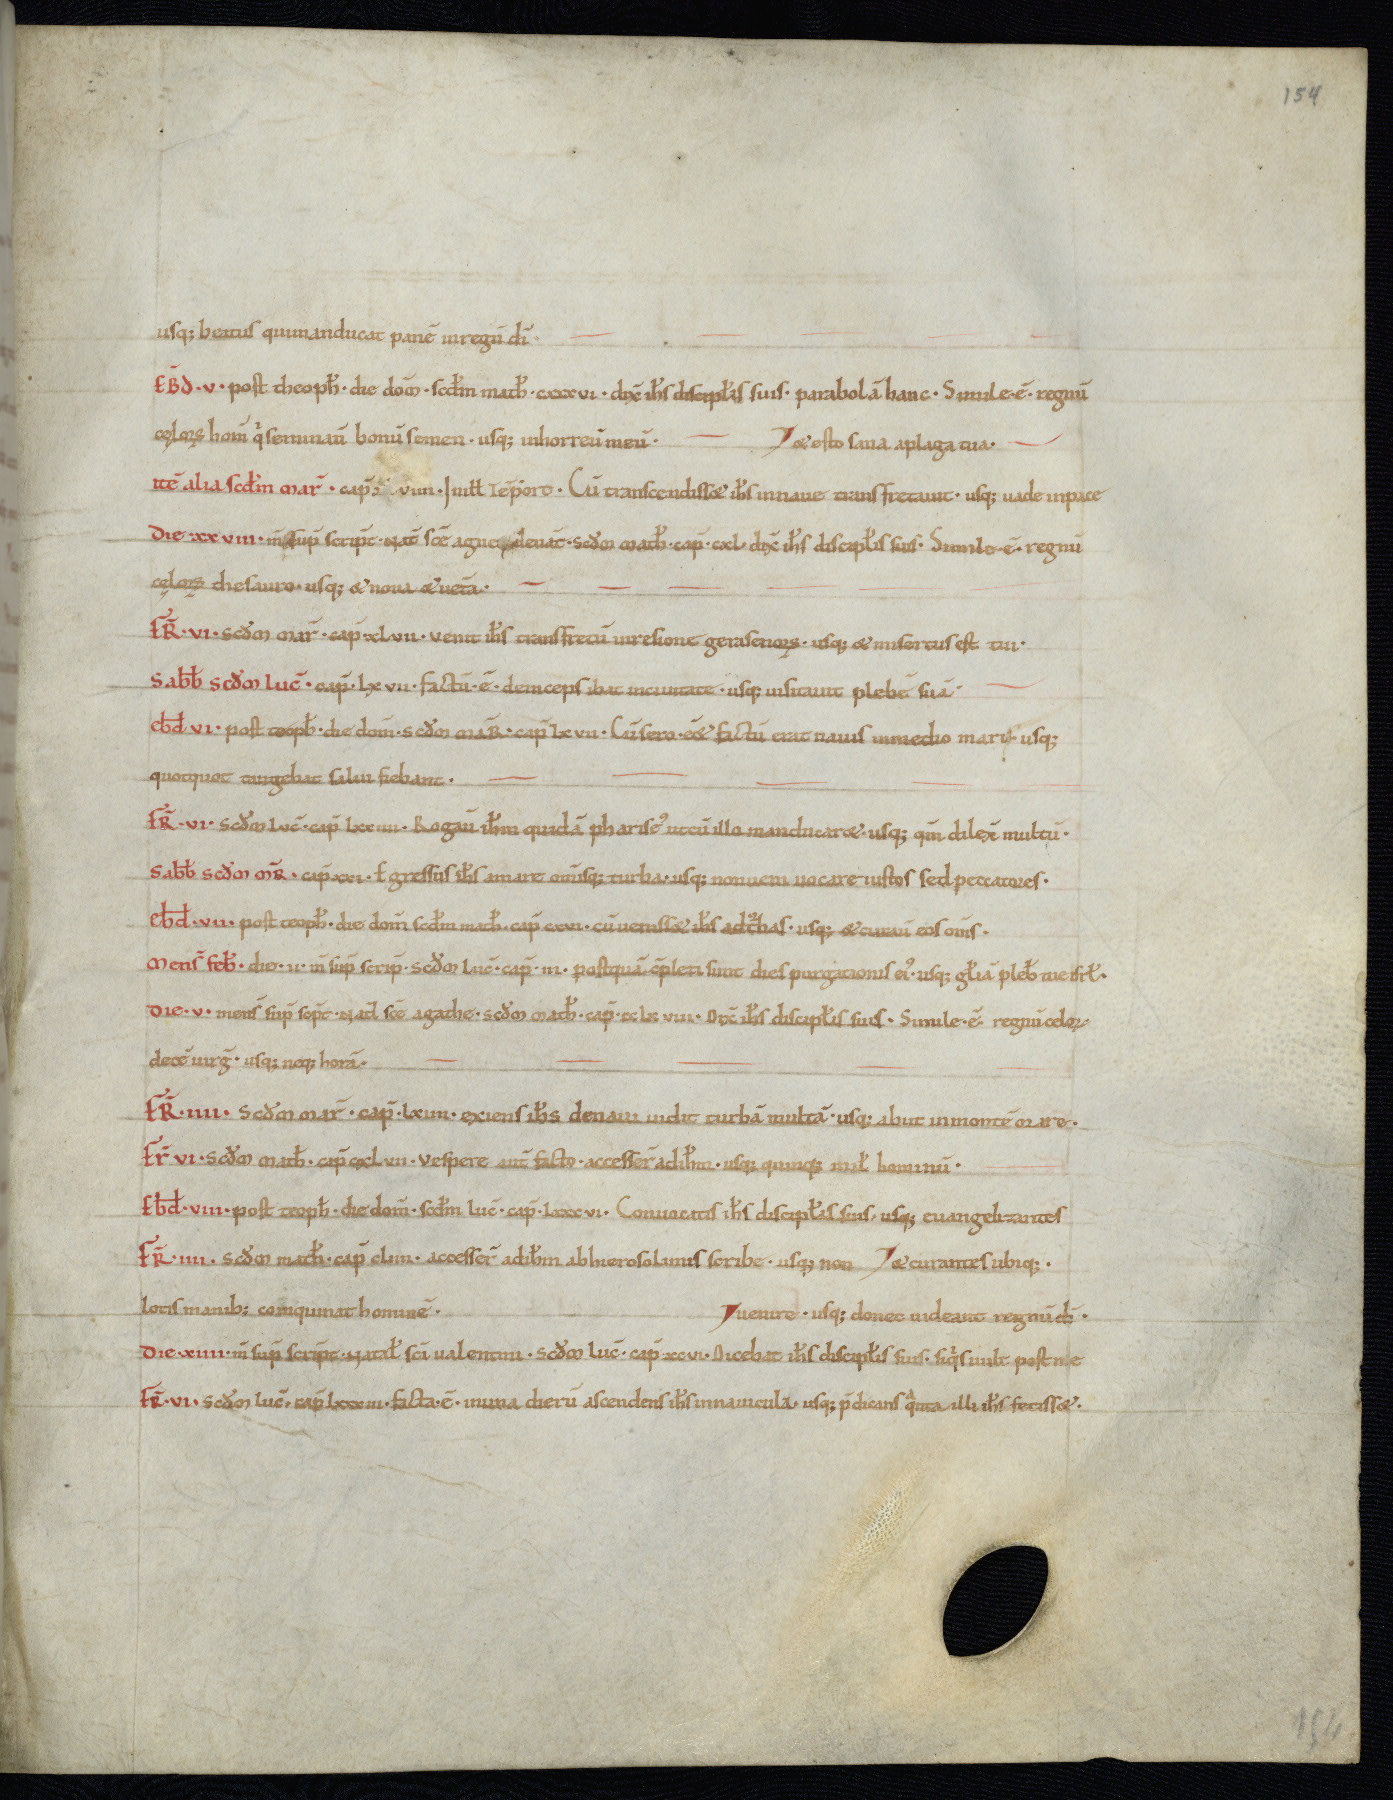 154
usq; beatus qui manducat panē in regnū dī
EBD · v · post theoph̄ · die dom̄ · scd̄m math̄ · cxxxvi · dix̄ ih̄s discipl̄is suis · parabolā hanc · Simile · ē · regnū
celorꝝ hom̄ q̇ seminau̅ bonū semen · usq; in horreū meū · & esto sana a plaga tua ·
Itē alia scd̄m mar̄ · cap̄ viiii · In ill̄ tēpore · Cū transcendiss& ih̄s in naue transfretauit · usq; uade in pace
Die · xxviii · m̄ sup̄ script · nat̄ sc̄e agnetis de nat̄ · scd̄m math̄ · cap̄ · cxl · dix̄ ih̄s discipl̄is suis · Simile · ē · regnū
celorꝝ thesauro · usq; & noua & uetā ·
FR̄ · vi · scd̄m mar̄ · cap̄ · xlvii · venit ih̄s trans fretū in regione gerasenorꝝ · usq; & misertus est tui ·
Sabb̄ scd̄m luc̄ · cap̄ · lxvii · factū · ē · deinceps ibat in ciuitate · usq; uisitauit plebē suā ·
ebd̄ vi · post teoph̄ · die dom̄ · scd̄m mar̄ · cap̄ lxvii · Cū sero · ee& factū erat nauis in medio maris · usq;
quotquot tangebat salui fiebant ·
FR̄ · vi · scd̄m luc̄ · cap̄ lxxiiii · Rogau̅ ih̄m quidā phariseꝰ ut cū illo manducar& · usq; qm̄ dilex̄ multū ·
Sabb̄ scd̄m mr̄ · cap̄ · xxi · Egressus ih̄s a mare om̄isq; turba · usq; non ueni uocare iustos sed peccatores ·
ebd̄ · vii · post teoph̄ · die dom̄ scd̄m math̄ · cap̄ cxvi · cū ueniss& ih̄s ad turbas · usq; & curau̅ eos om̄s ·
Mens̄ feb̄ · die · ii · m̄ sup̄ scrip̄ · scd̄m luc̄ · cap̄ · iii · postquā c̄pleti sunt dies purgationis eiꝰ · usq; gl̄iā pleb̄ tue isrl̄ ·
Die · v · mens̄ sup̄ scp̄t · natl̄ sc̄e agathe · scd̄m math̄ · cap̄ · cclxviii · Dix̄ ih̄s discipl̄is suis · Simile · ē · regnū celorꝝ
decē uirḡ · usq; neq; horā ·
FR̄ · iiii · scd̄m mar̄ · cap̄ · lxiiii · exiens ih̄s de naui uidit turbā multā · usq; abiit in montē orare ·
Fr̄ vi · scd̄m math̄ · cap̄ cxlvii · Vespere aut̄ facto · accesser̄ ad ih̄m · usq; quinq; mil̄ hominū ·
Ebd̄ · viii · post teoph̄ · die dom̄ · scd̄m luc̄ · cap̄ · lxxxvi · Conuocatis ih̄s discipl̄is suis · usq; euangelizantes
FR̄ · iiii · scd̄m math̄ · cap̄ cliiii · accesser̄ ad ih̄m ab hierosolimis scribe · usq; non & curantes ubiq; ·
lotis manib; coinquinat hominē · uenire · usq; donec uideant regnū dī ·
Die · xiiii · m̄ sup̄ script · natal̄ sci̅ ualentini · scd̄m luc̄ · cap̄ · xcvi · Dicebat ih̄s discipl̄is suis · siq̇s uult post me
FR̄ · vi · scd̄m luc̄ · cap̄ lxxxiii · facta · ē · in una dierū ascendens ih̄s in nauiculā · usq; p̄dicans q̄nta illi ih̄s feciss& ·
154